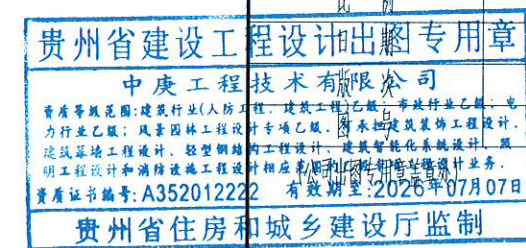 比 例
贵州省建设工程设计出图专用章
日 期
中庚工程技术有限公司
版 次
资质等级范围:建筑行业(人防工程、建筑工程)乙级;市政行业乙级;电
力行业乙级;风景园林工程设计专项乙级。可承担建筑装饰工程设计、
图 号
建筑幕墙工程设计、轻型钢结构工程设计、建筑智能化系统设计、照
明工程设计和消防设施工程设计相应范围的
工程设计业务。
(公司出图专用章盖章办)
资质证书编号:A352012222 有效期至:2026年07月07日
贵州省住房和城乡建设厅监制